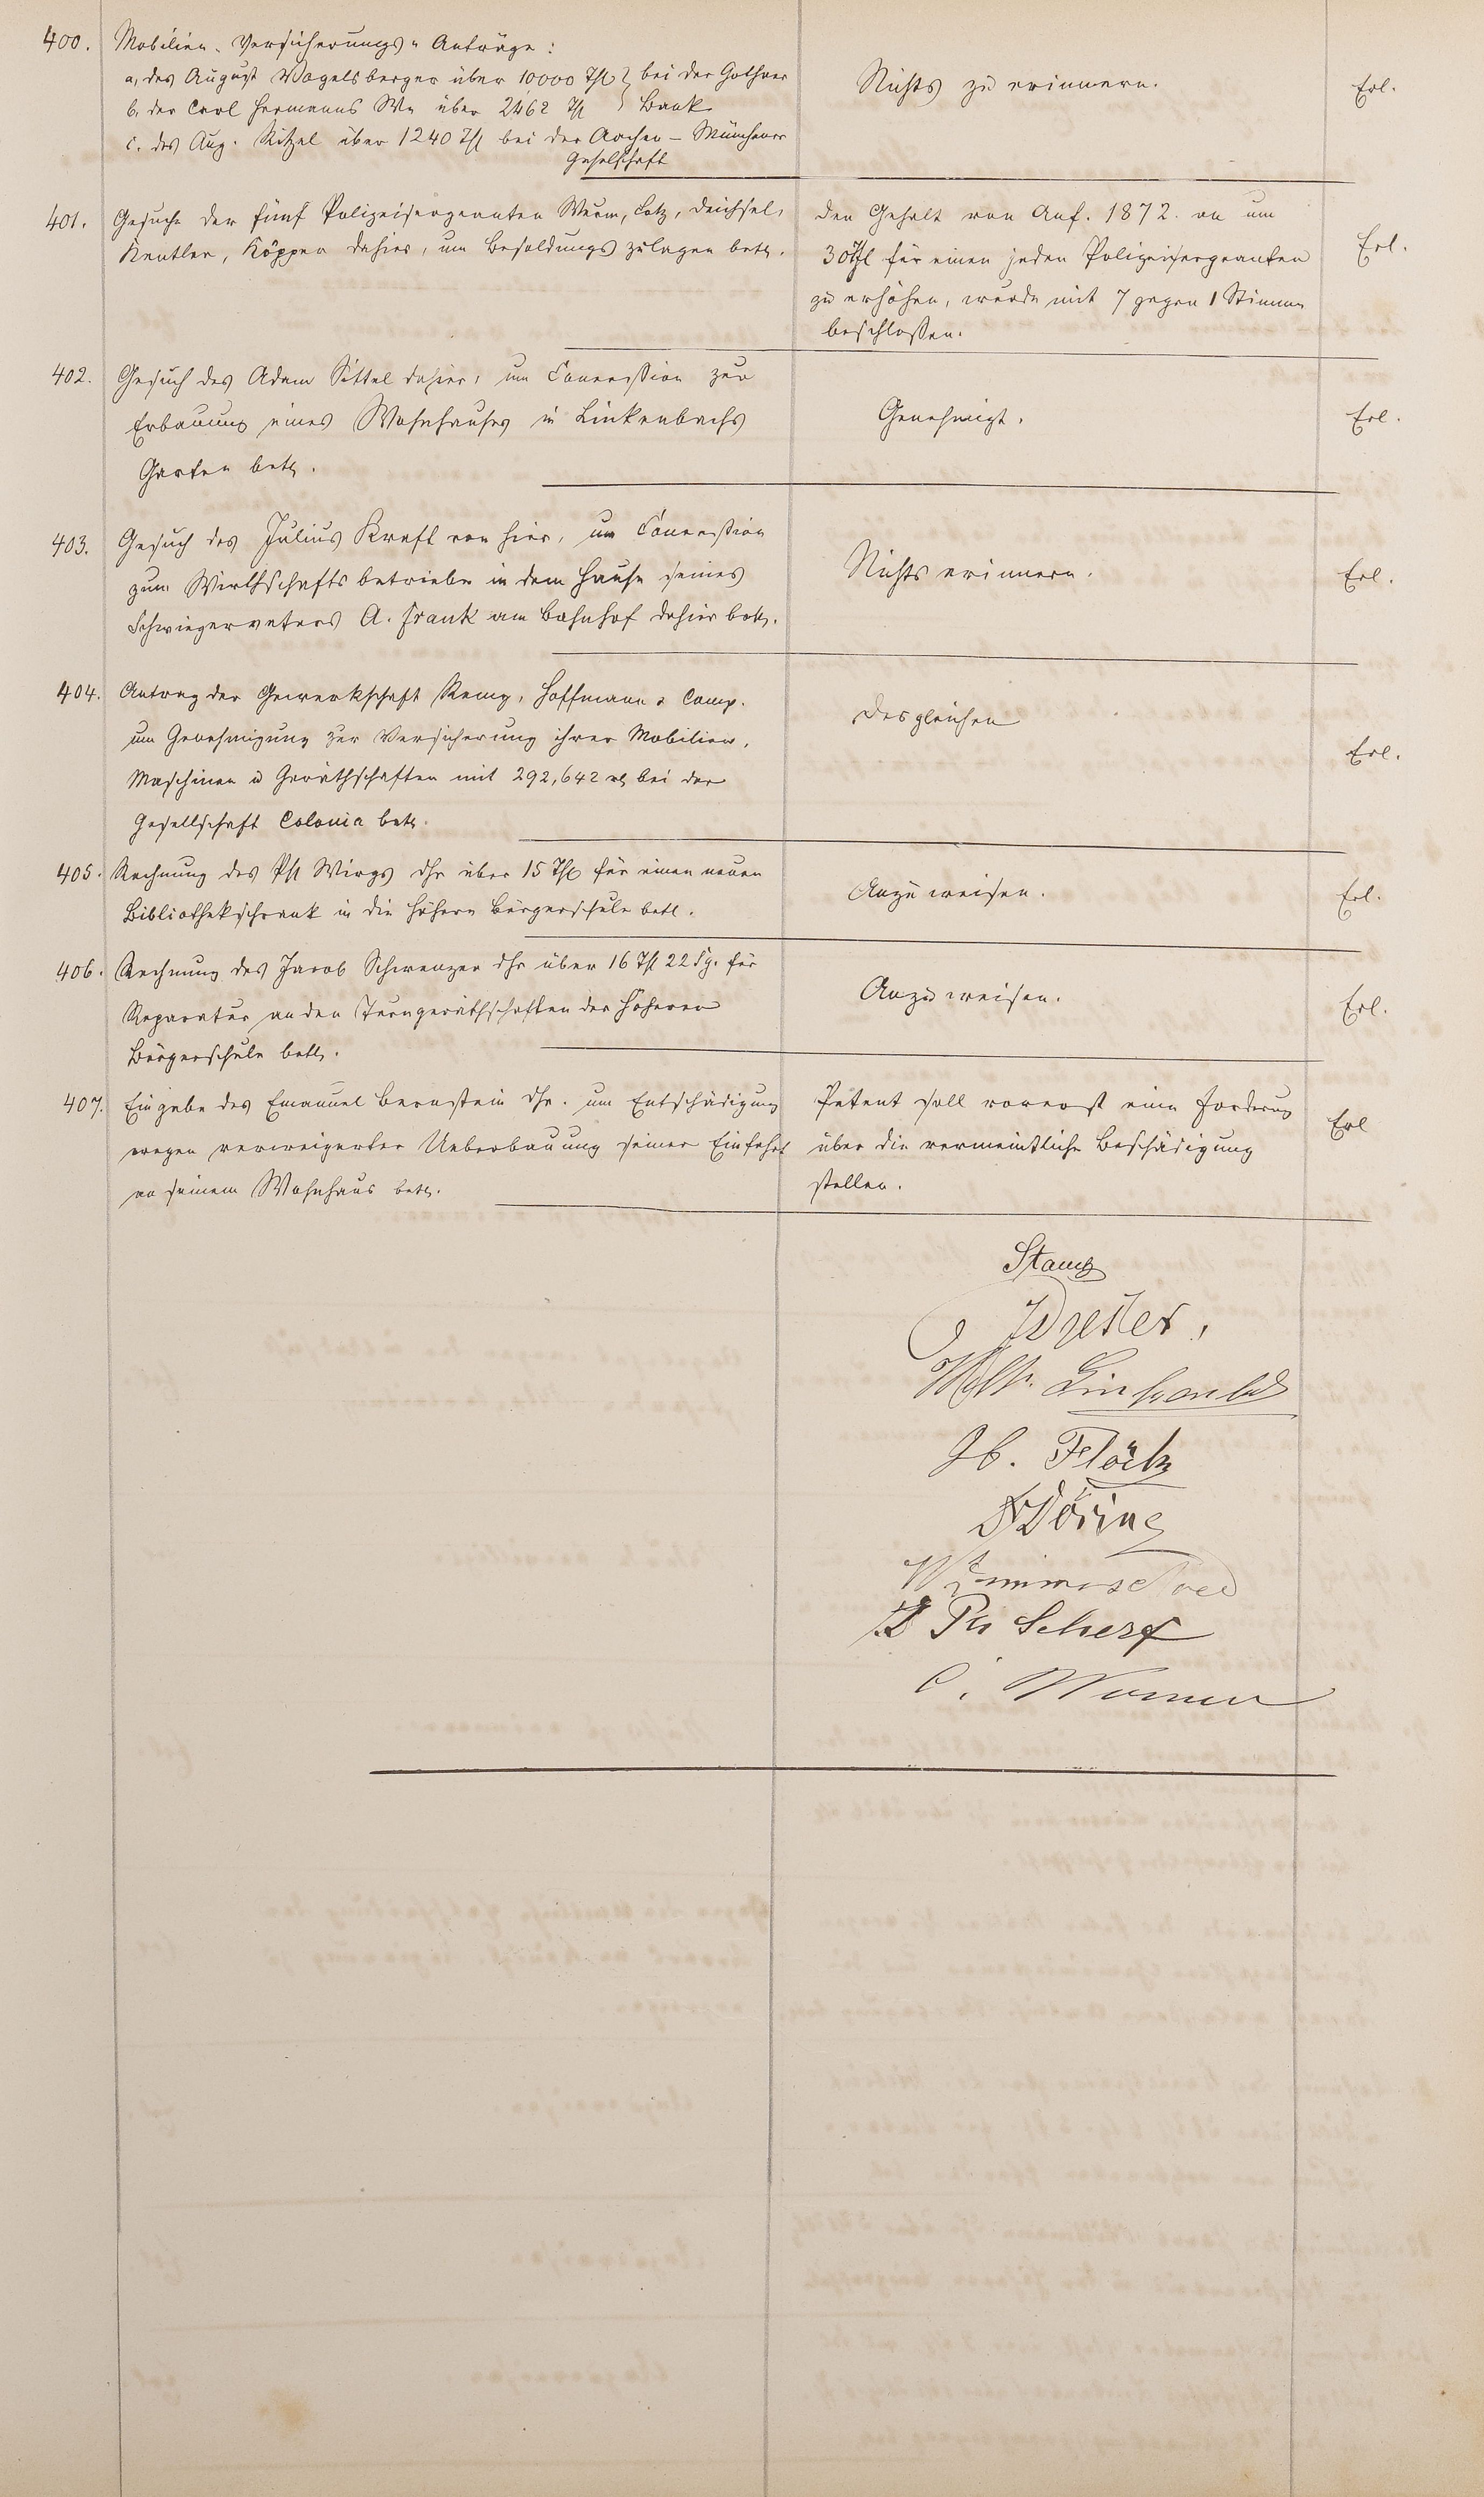 400. Mobilien-Versicherungs-Anträge:
a, des August Vogelsberger über 10000 Thl } bei der Gothaer
b, der Carl Hermanns We über 2462 Thl } Bank
c. des Aug. Kitzel über 1240 Thl bei der Aachen-Münchener
Gesellschaft
Nichts zu erinnern.
Erl.
401. Gesuche der fünf Polizeisergeanten Wurm, Lotz, Deichsel,
Kentler, Köppen dahier, um Besoldungszulagen betr.
Den Gehalt von Anf. 1872 an um
30 Thl für einen jeden Polizeisergeanten
zu erhöhen, wurde mit 7 gegen 1 Stimme
beschloßen.
Erl.
402. Gesuch des Adam Sittel dahier, um Conceßion zur
Erbauung eines Wohnhauses in Linkenbachs
Garten betr.
Genehmigt.
Erl.
403. Gesuch des Julius Kraft von hier, um Conceßion
zum Wirthschaftsbetriebe in dem Hause seines
Schwiegervaters A. Frank am Bahnhof dahier betr.
Nichts erinnern.
Erl.
404. Antrag der Gewerkschaft Remy, Hoffmann & Comp.
um Genehmigung zur Versicherung ihrer Mobilien,
Maschinen u Geräthschaften mit 292,642 rt bei der
Gesellschaft Colonia betr.
Desgleichen
Erl.
405. Rechnung des Ph Wirgs dhr über 15 Thl für einen neuen
Bibliothekschrank in die höhere Bürgerschule betr.
Anzuweisen.
Erl.
406. Rechnung des Jacob Schwenzer dhr über 16 Thl 22 Sg. für
Reparatur an den Turngeräthschaften der Höheren
Bürgerschule betr.
Anzuweisen.
Erl.
407. Eingabe des Emanuel Bernstein dhr. um Entschädigung
wegen verweigerter Ueberbauung seiner Einfahrt
an seinem Wohnhaus betr.
Petent soll vorerst eine Forderung
über die vermeintliche Beschädigung
stellen.
Erl
Wilh. Linkenbach
Jb. Flöck
Döring
Ph Scherf